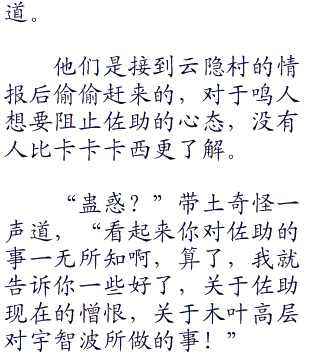 道。
他们是接到云隐村的情
报后偷偷赶来的，对于鸣人
想要阻止佐助的心态，没有
人比卡卡卡西更了解。
“蛊惑？”带土奇怪一
声道，“看起来你对佐助的
事一无所知啊，算了，我就
告诉你一些好了，关于佐助
现在的憎恨，关于木叶高层
对宇智波所做的事！”